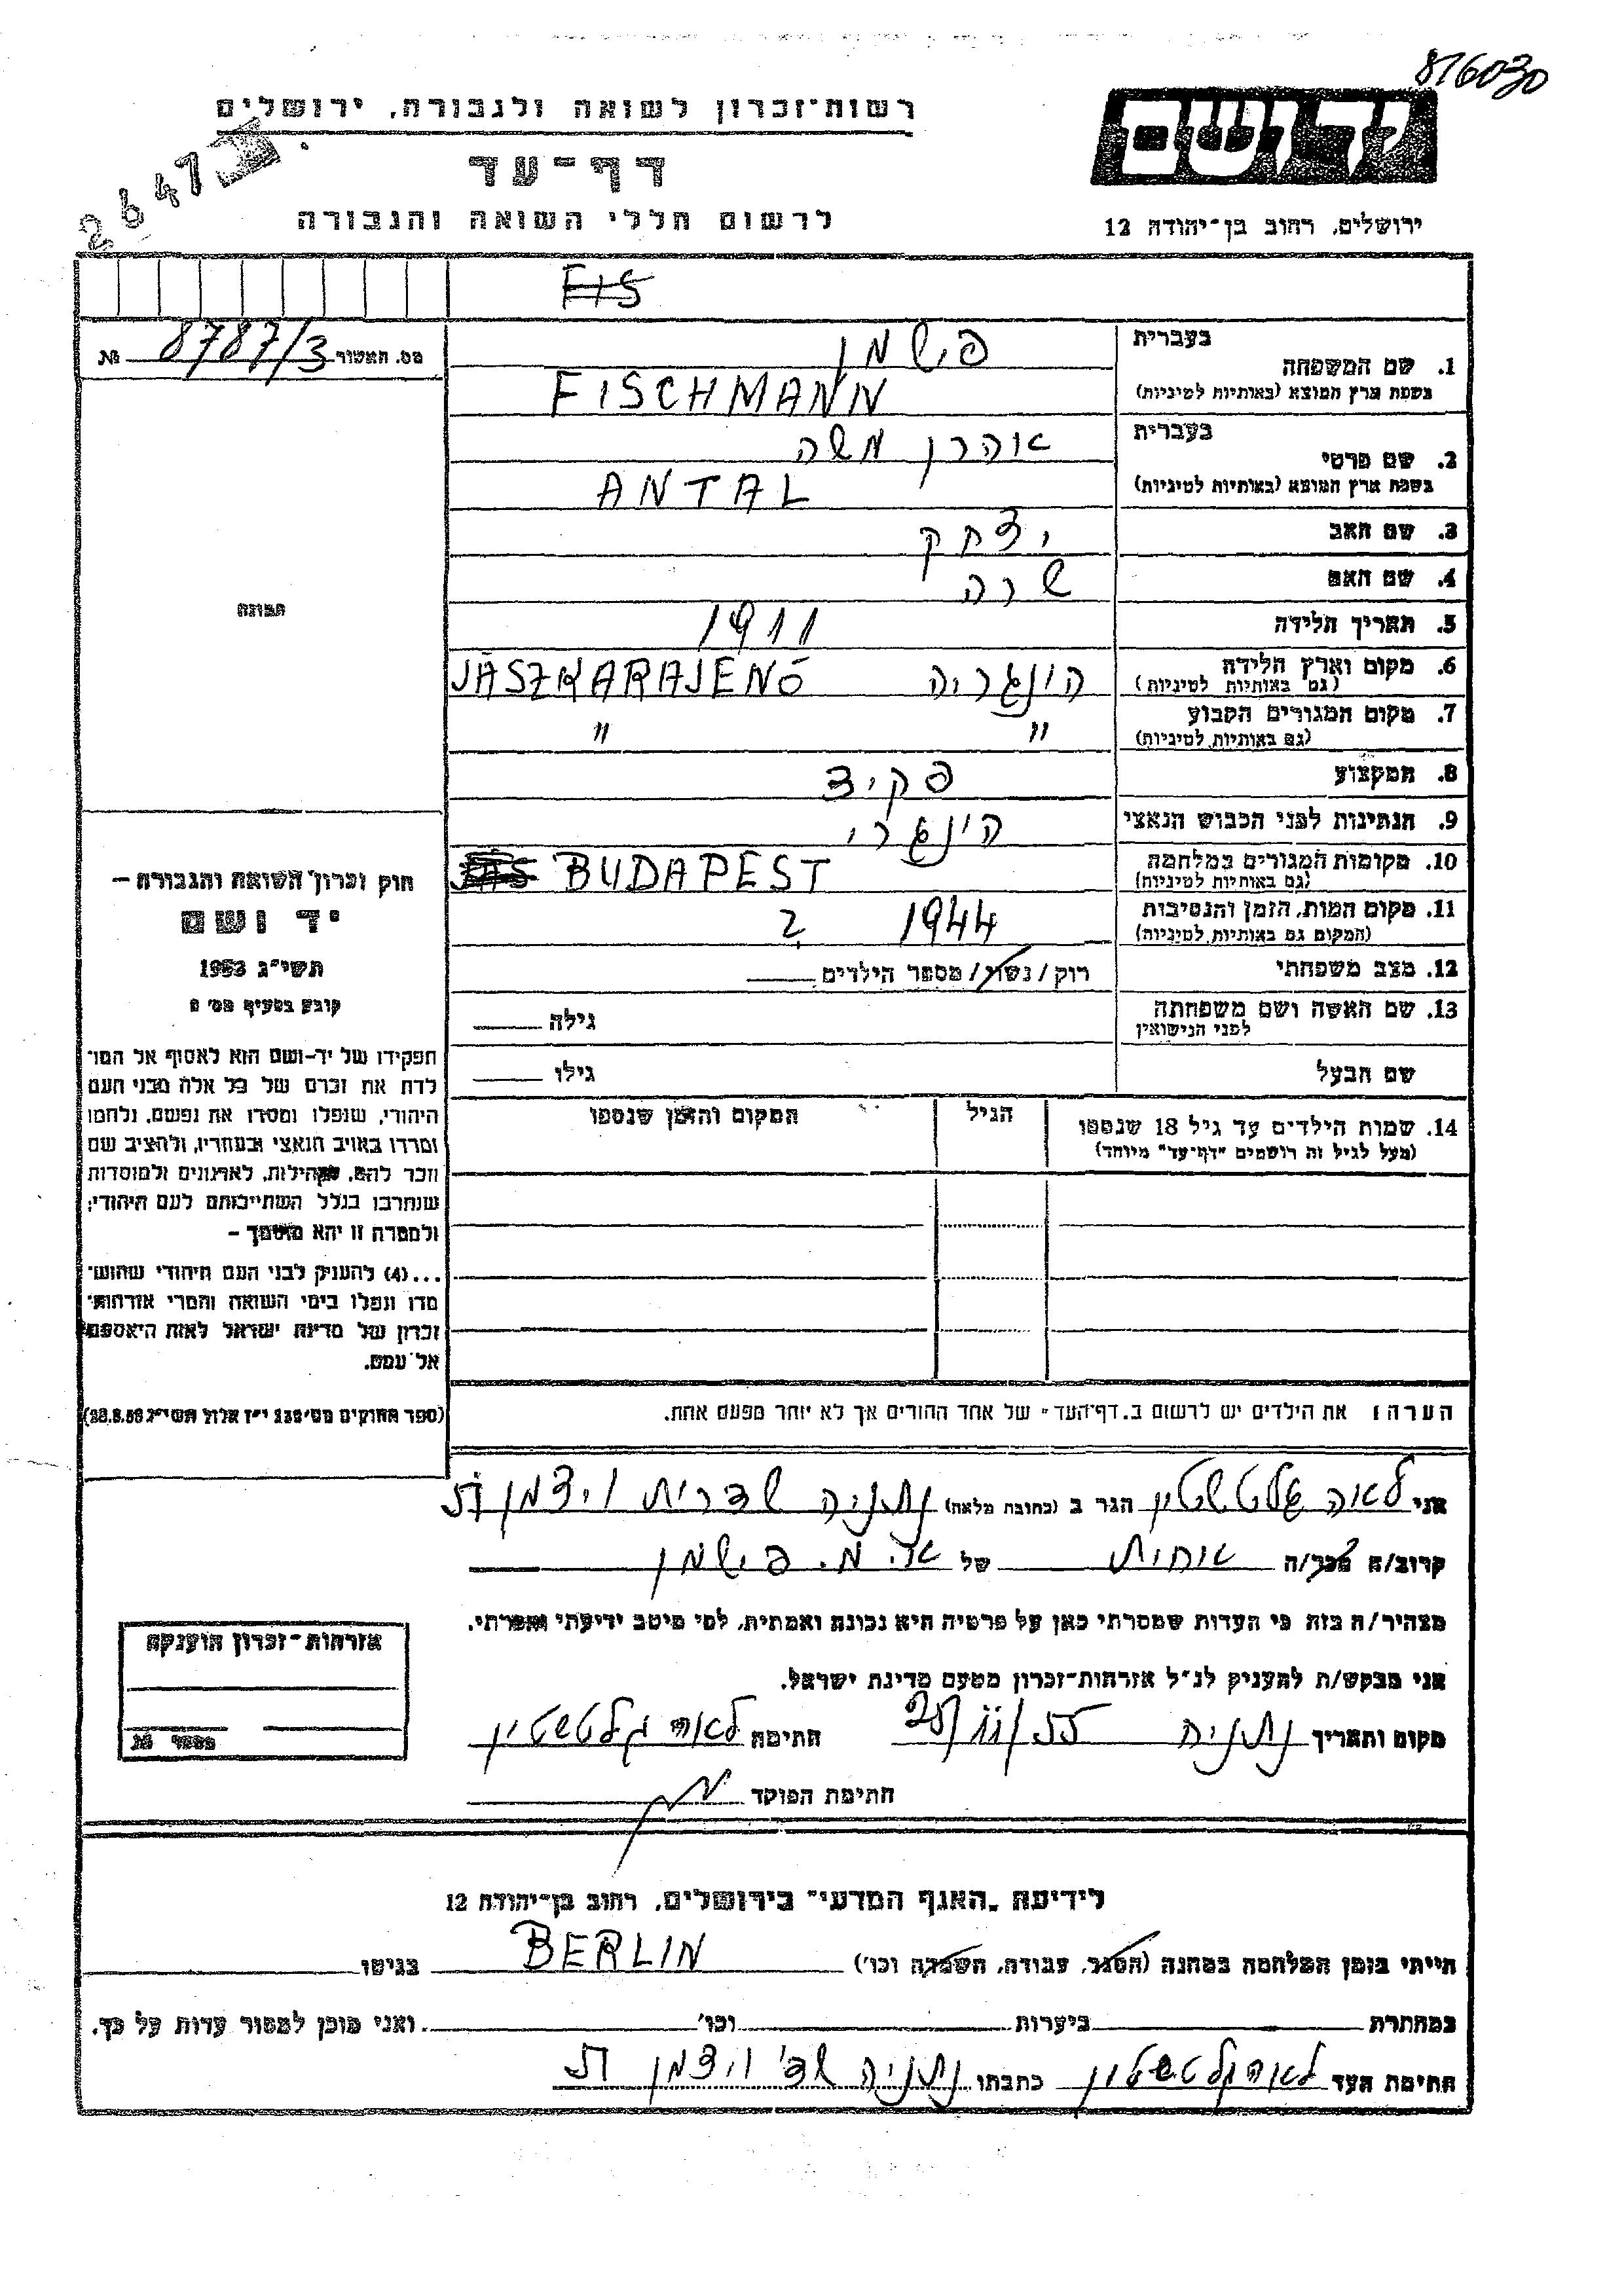 816030
ידושם
רשות־זכרון לשואה ולגבורה, ירושלים
2647
דף־עד
ירושלים, רחוב בן־יהודה 12
לרשום חללי השואה והגבורה
FIS
מס. האשור 8787/3 №
בעברית
1. שם המשפחה פישמן
בשפת ארץ המוצא (באותיות לטיניות) FISCHMANN
בעברית
2. שם פרטי אהרן משה
בשפת ארץ המוצא (באותיות לטיניות) ANTAL
3. שם האב יצחק
4. שם האם שרה
תמונה
5. תאריך הלידה 1911
6. מקום וארץ הלידה הונגריה JÁSZKARAJENŐ
(גם באותיות לטיניות)
7. מקום המגורים הקבוע " "
(גם באותיות לטיניות)
8. המקצוע פקיד
9. הנתינות לפני הכבוש הנאצי הונגרי
10. מקומות המגורים במלחמה BUDAPEST
(גם באותיות לטיניות)
11. מקום המות, הזמן והנסיבות 1944 ?
(המקום גם באותיות לטיניות)
12. מצב משפחתי רוק/נשוי/מספר הילדים
13. שם האשה ושם משפחתה גילה
לפני הנישואין
שם הבעל גילו
14. שמות הילדים עד גיל 18 שנספו הגיל המקום והזמן שנספו
(מעל לגיל זה רושמים "דף־עד" מיוחד)
חוק זכרון השואה והגבורה –
יד ושם
תשי"ג 1953
קובע בסעיף מס'
תפקידו של יד-ושם הוא לאסוף אל המו־
לדת את זכרם של כל אלה מבני העם
היהודי, שנפלו ומסרו את נפשם, נלחמו
ומרדו באויב הנאצי ובעוזריו, ולהציב שם
וזכר להם, לקהילות, לארגונים ולמוסדות
שנחרבו בגלל השתייכותם לעם היהודי;
ולמטרה זו יהא מוסמך –
...(4) להעניק לבני העם היהודי שהוש־
מדו ונפלו בימי השואה והמרי אזרחות־
זכרון של מדינת ישראל לאות היאספם
אל עמם.
(ספר החוקים מס' 132 י"ז אלול תשי"ג 28.8.53)
הערה: את הילדים יש לרשום ב„דף־העד" של אחד ההורים אך לא יותר מפעם אחת.
אני לאה גלטשטיין הגר ב (כתובת מלאה) נתניה שדרות ויצמן
קרוב/ה מכר/ה אחות של א. מ. פישמן
מצהיר/ה בזה כי העדות שמסרתי כאן על פרטיה היא נכונה ואמתית, לפי מיטב ידיעתי והכרתי.
אני מבקש/ת להעניק לנ"ל אזרחות־זכרון מטעם מדינת ישראל.
אזרחות־זכרון הוענקה
מספר №
מקום ותאריך נתניה חתימה לאה גלטשטיין
חתימת הפוקד
לידיעת „האגף המדעי" בירושלים, רחוב בן־יהודה 12
הייתי בזמן המלחמה במחנה (הסגר, עבודה, השמדה וכו') BERLIN בגיטו
במחתרת ביערות וכו' ואני מוכן למסור עדות על כך.
חתימת העד לאה גלטשטיין כתבתו נתניה שד' ויצמן